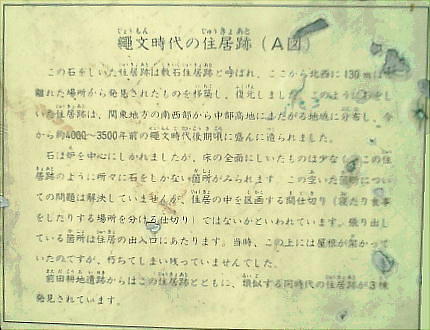 繩文時代の住居跡（A図）
この石をしいた住居跡は敷石住居跡と呼ばれ、ここから北西に130mほど
離れた場所から発見されたものを移築し、復元しました。このような石をし
いた住居は、関東地方の南西部から中部高地にまたがる地域に分布し、今
から約4000〜3500年前の繩文時代後期頃に盛んに造られました。
石は炉を中心にしかれましたが、床の全面にしいたものは少なく、この住
居跡のように所々に石をしかない箇所がみられます。この空いた箇所につい
ての問題は解決していませんが、住居の中を区画する間仕切り（寝たり食事
をしたりする場所を分ける仕切り）ではないかといわれています。張り出し
ている箇所は住居の出入口にあたります。当時、この上には屋根が架かって
いたのですが、朽ちてしまい残っていませんでした。
前田耕地遺跡からはこの住居跡とともに、類似する同時代の住居跡が3棟
発見されています。